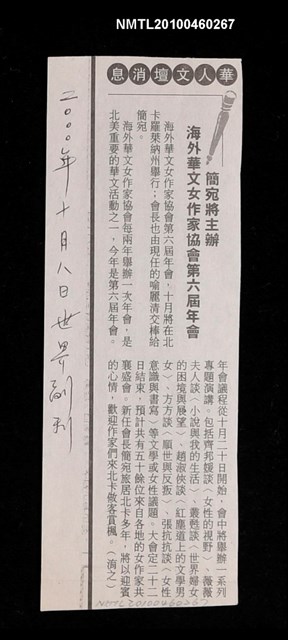 NMTL20100460267
華人文壇消息
簡宛將主辦
海外華文女作家協會第六屆年會
海外華文女作家協會第六屆年會,十月將在北
卡羅萊納州舉行;會長也由現任的喻麗清交棒給
簡宛。
海外華文女作家協會每兩年舉辦一次年會,是
北美重要的華文活動之一,今年是第六屆年會。
年會議程從十月二十日開始,會中將舉辦一系列
專題演講。包括齊邦媛談〈女性的視野〉、薇薇
夫人談〈小說與我的生活〉、叢甦談〈世界婦女
的困境與展望〉、趙淑俠談〈紅塵道上的文學男
女〉、方方談〈順世與反叛〉、張抗抗談〈女性
意識與書寫〉等文學或女性議題。大會定二十二
日結束,預計共有五十餘位來自各地的女作家共
襄盛會。新任會長簡宛旅居北卡多年,將以迎賓
的心情,歡迎作家們來北卡做客賞楓。(洵之)
二〇〇〇年十月八日世界副刊